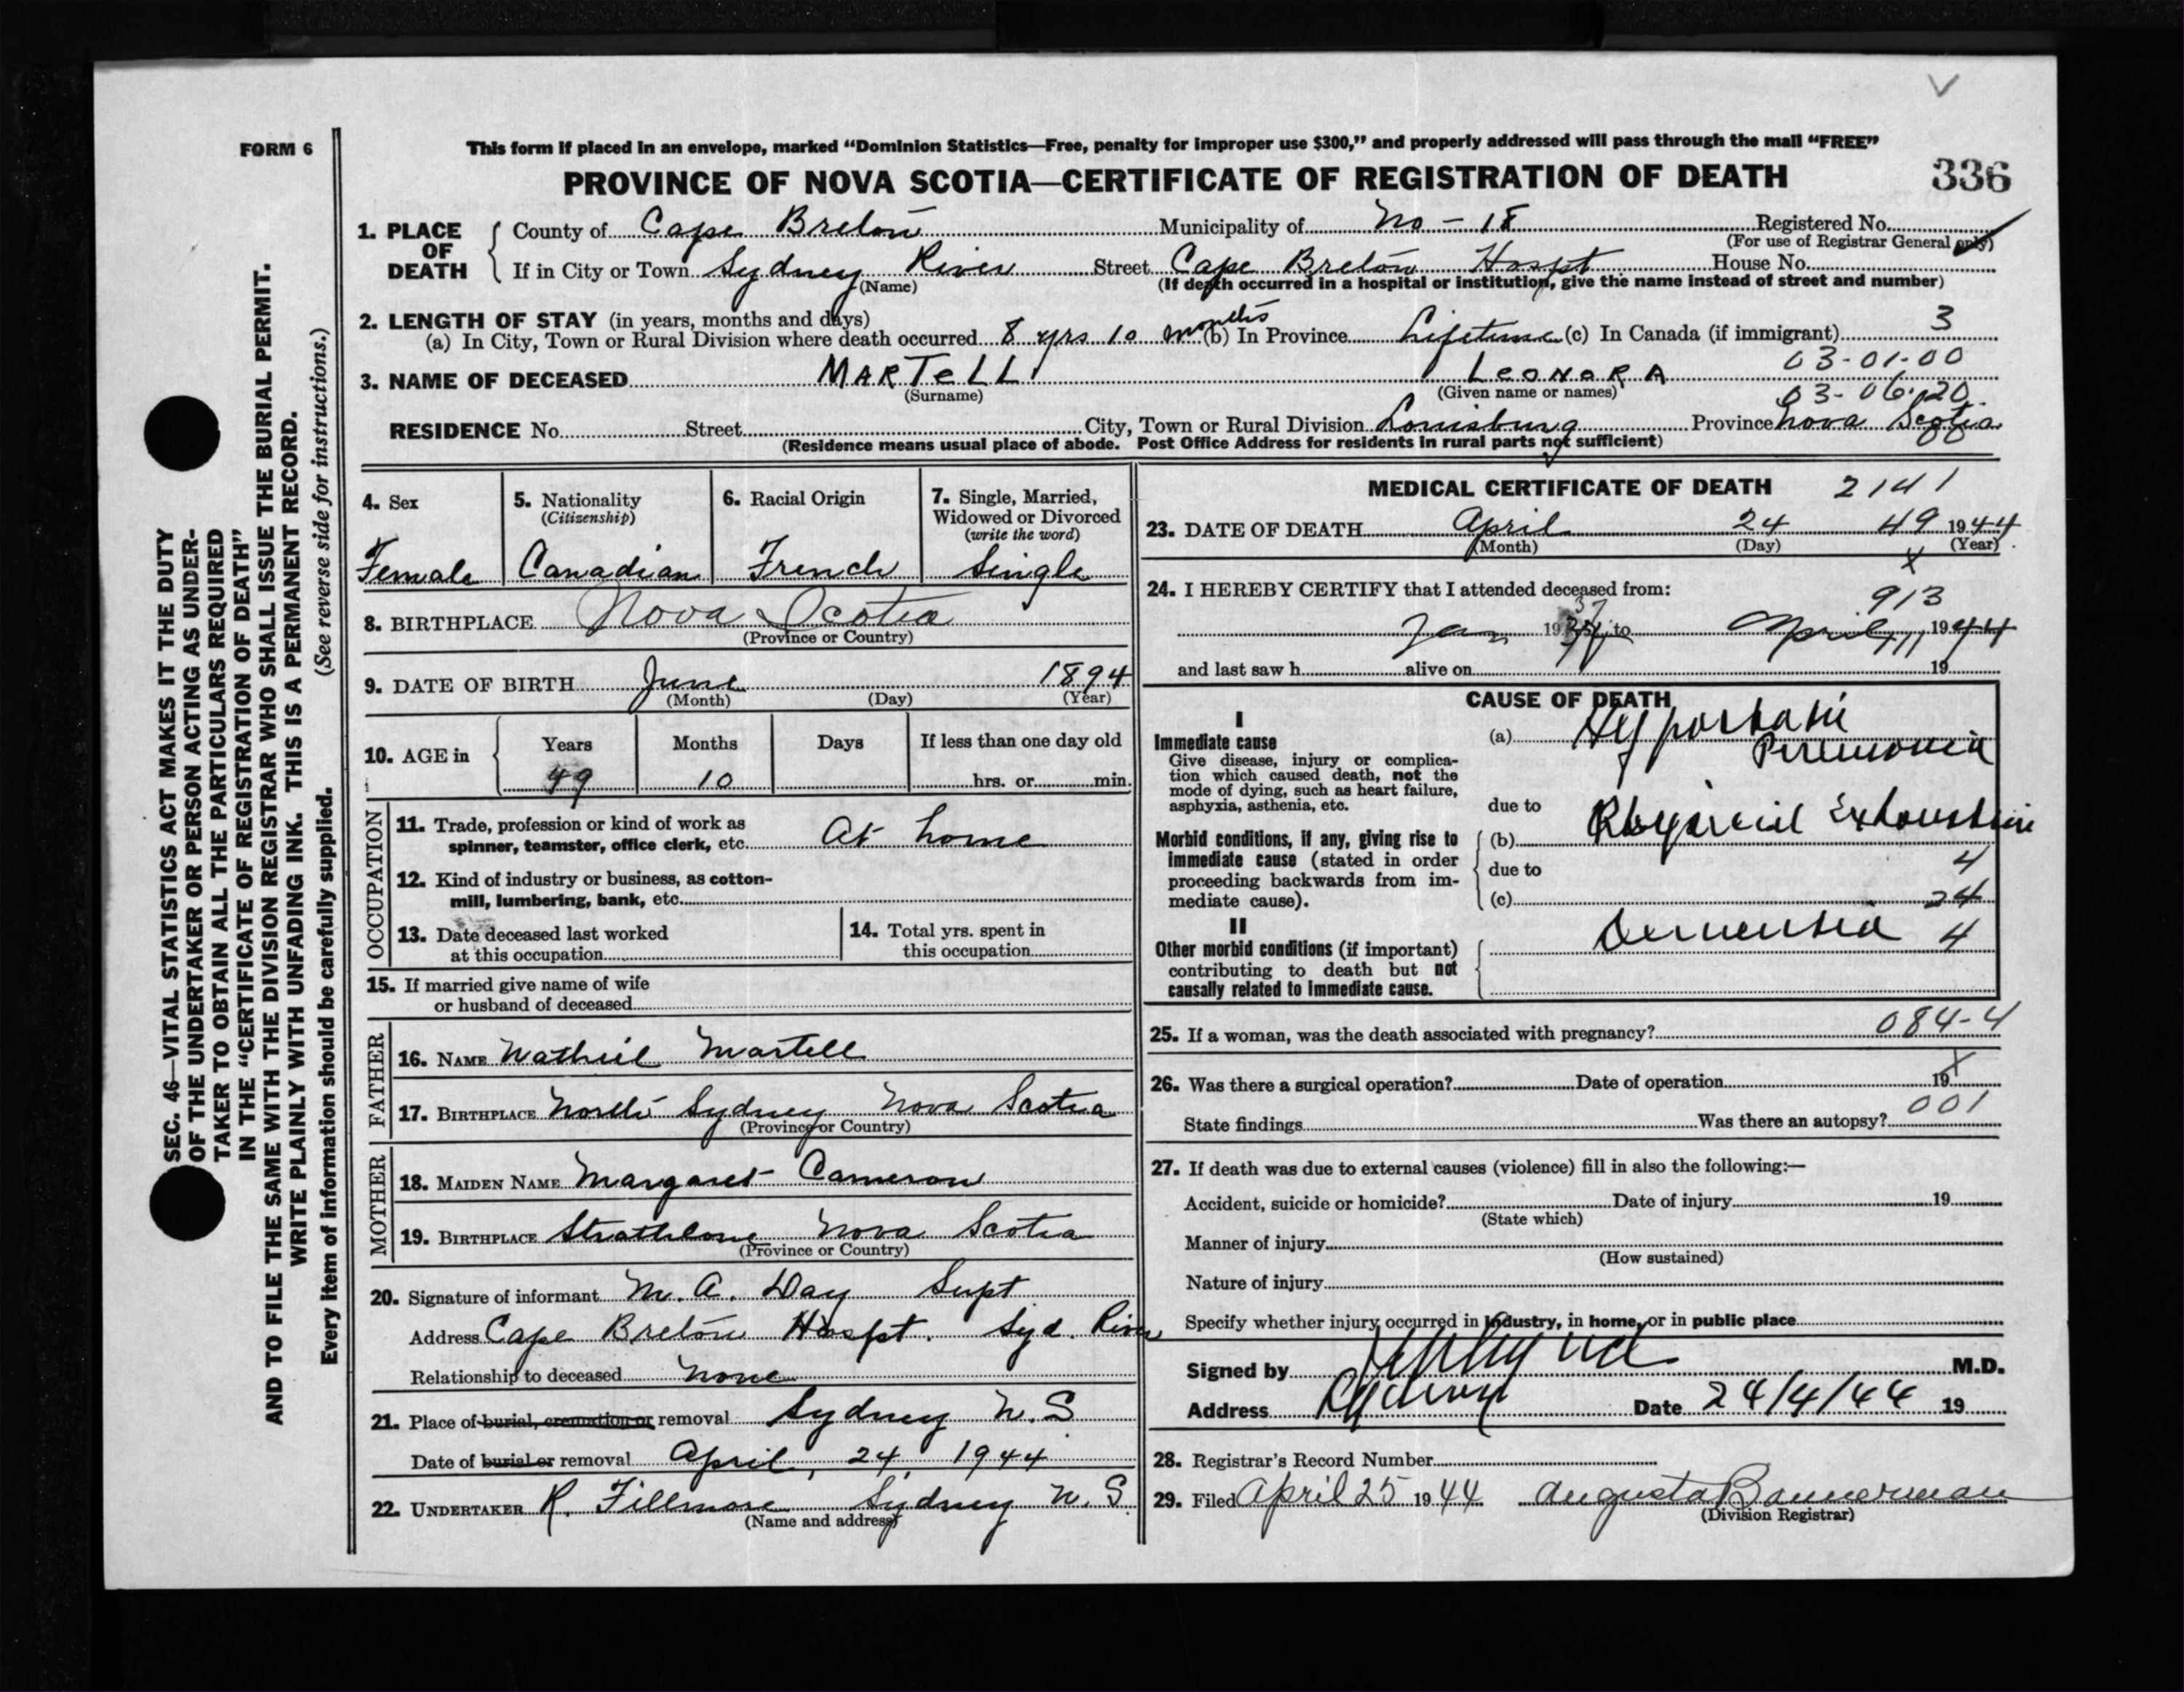 FORM 6
This form if placed in an envelope, marked “Dominion Statistics—Free, penalty for improper use $300,” and properly addressed will pass through the mail “FREE”
PROVINCE OF NOVA SCOTIA—CERTIFICATE OF REGISTRATION OF DEATH 336
1. PLACE OF DEATH
County of Cape Breton Municipality of No - 18 Registered No.
(For use of Registrar General only)
If in City or Town Sydney River Street Cape Breton Hospt. House No.
(Name) (If death occurred in a hospital or institution, give the name instead of street and number)
2. LENGTH OF STAY (in years, months and days)
(a) In City, Town or Rural Division where death occurred 8 yrs 10 months (b) In Province Lifetime (c) In Canada (if immigrant) 3
03-01-00
3. NAME OF DECEASED MARTELL LEONORA
(Surname) (Given name or names)
03-06-20
RESIDENCE No. Street City, Town or Rural Division Louisburg Province Nova Scotia
(Residence means usual place of abode. Post Office Address for residents in rural parts not sufficient)
4. Sex 5. Nationality (Citizenship) 6. Racial Origin 7. Single, Married, Widowed or Divorced (write the word)
Female Canadian French Single
8. BIRTHPLACE Nova Scotia
(Province or Country)
9. DATE OF BIRTH June 1894
(Month) (Day) (Year)
10. AGE in Years Months Days If less than one day old
49 10 hrs. or min.
OCCUPATION
11. Trade, profession or kind of work as
spinner, teamster, office clerk, etc. At home
12. Kind of industry or business, as cotton-
mill, lumbering, bank, etc.
13. Date deceased last worked
at this occupation
14. Total yrs. spent in
this occupation
15. If married give name of wife
or husband of deceased
FATHER
16. NAME Martell
17. BIRTHPLACE North Sydney Nova Scotia
(Province or Country)
MOTHER
18. MAIDEN NAME Margaret Cameron
19. BIRTHPLACE Nova Scotia
(Province or Country)
20. Signature of informant M. A. Day Supt
Address Cape Breton Hospt. Syd. River
Relationship to deceased None
21. Place of burial, cremation or removal Sydney N.S.
Date of burial or removal April, 24, 1944
22. UNDERTAKER R. Fillmore Sydney N.S.
(Name and address)
MEDICAL CERTIFICATE OF DEATH 2141
23. DATE OF DEATH April 24 49 1944
(Month) (Day) (Year)
x
24. I HEREBY CERTIFY that I attended deceased from:
913
Jan 19 to April 1944
and last saw h alive on 19
CAUSE OF DEATH
I
Immediate cause
Give disease, injury or complica-
tion which caused death, not the
mode of dying, such as heart failure,
asphyxia, asthenia, etc.
(a) Hypostatic
Pneumonia
due to
Morbid conditions, if any, giving rise to
immediate cause (stated in order
proceeding backwards from im-
mediate cause).
(b) Physical Exhaustion
due to 4
(c) 24
II
Other morbid conditions (if important)
contributing to death but not
causally related to immediate cause.
Dementia 4
25. If a woman, was the death associated with pregnancy? 084-4
26. Was there a surgical operation? Date of operation 19
x
State findings Was there an autopsy? 001
27. If death was due to external causes (violence) fill in also the following:—
Accident, suicide or homicide? Date of injury 19
(State which)
Manner of injury
(How sustained)
Nature of injury
Specify whether injury occurred in industry, in home, or in public place
Signed by M.D.
Address Date 24/4/44 19
28. Registrar's Record Number
29. Filed April 25 1944 Augusta Bannerman
(Division Registrar)
SEC. 46—VITAL STATISTICS ACT MAKES IT THE DUTY
OF THE UNDERTAKER OR PERSON ACTING AS UNDER-
TAKER TO OBTAIN ALL THE PARTICULARS REQUIRED
IN THE “CERTIFICATE OF REGISTRATION OF DEATH”
AND TO FILE THE SAME WITH THE DIVISION REGISTRAR WHO SHALL ISSUE THE BURIAL PERMIT.
WRITE PLAINLY WITH UNFADING INK. THIS IS A PERMANENT RECORD.
Every item of information should be carefully supplied. (See reverse side for instructions.)